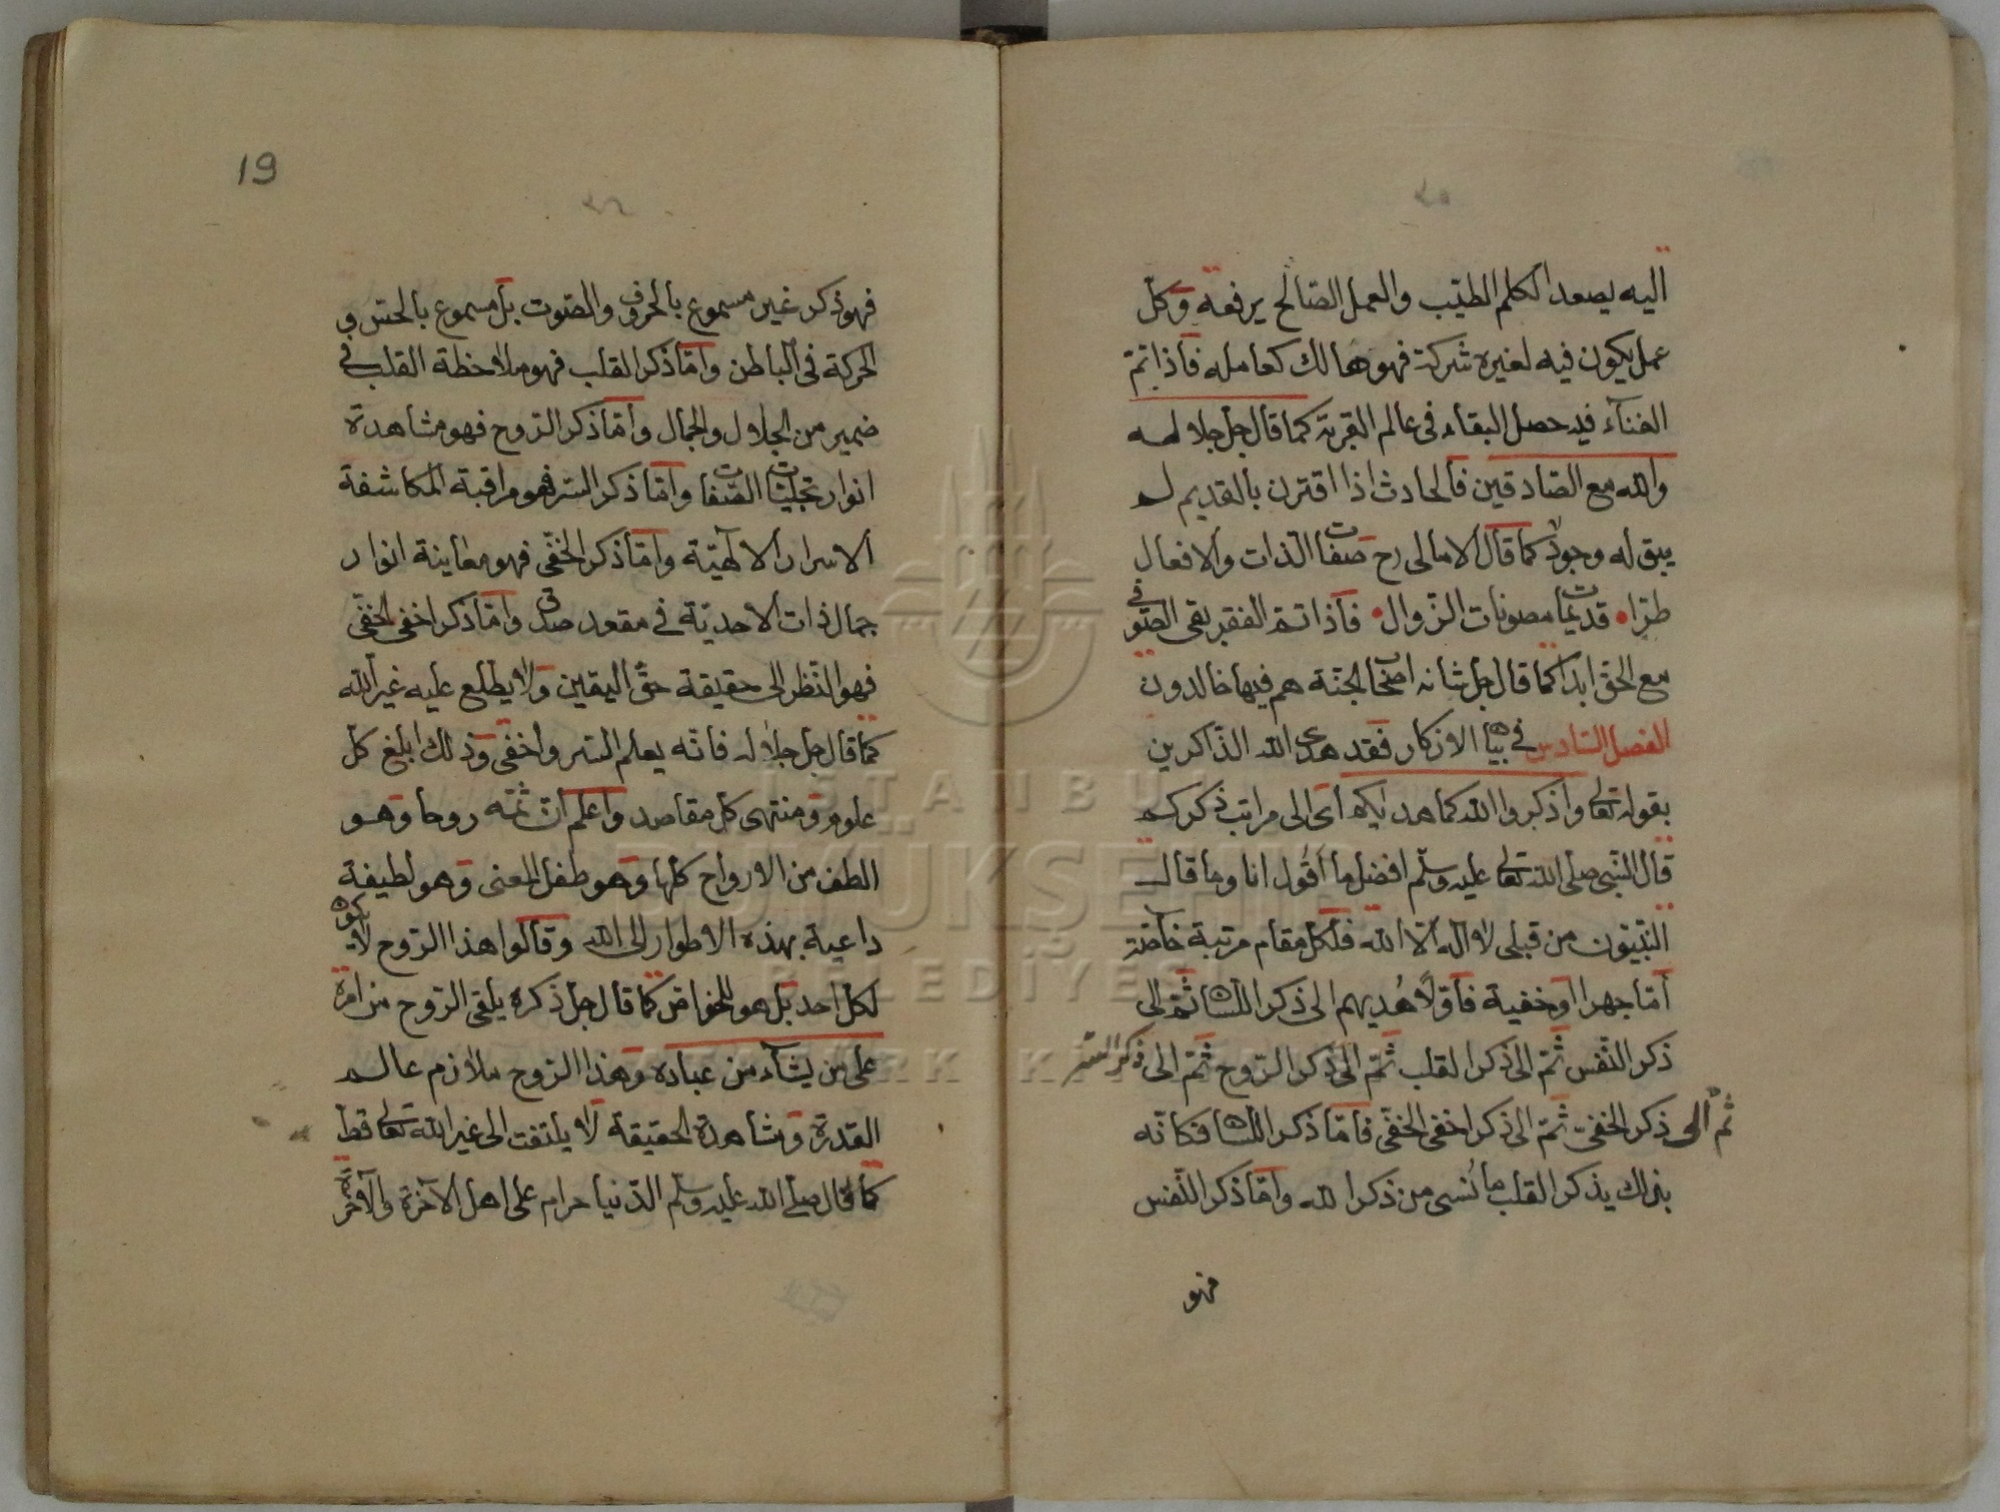 اليه يصعد الكلم الطيّب والعمل الصّالح يرفعه وكلّ
عمل يكون فيه لغيره شركة فهو هالك كعامله فاذا تمّ
الفناء فيه حصل البقاء فى عالم القربة كما قال جل جلاله
والله مع الصّادقين فالحادث اذا اقترن بالقديم لم
يبق له وجود كما قال الامالى رح صفات الذات والافعال
طرّا • قديمات مصونات الزّوال • فاذا تمّ الفقر بقى الصّوفى
مع الحق ابدا كما قال جل شانه اصحاب الجنّة هم فيها خالدون
الفصل السّادس فى بيان الاذكار فقد هدى الله الذاكرين
بقوله تعالى واذكروا الله كما هديكم اى الى مراتب ذكركم
قال النّبى صلى الله تعالى عليه وسلّم افضل ما اقول انا وما قال
النّبيّون من قبلى لا اله الّا الله فلكل مقام مرتبة خاصّة
امّا جهرا او خفية فاوّلا هُديهم الى ذكر اللّسان ثمّ الى
ذكر النّفس ثمّ الى ذكر القلب ثمّ الى ذكر الرّوح ثمّ الى ذكر السّر
ثم الى ذكر الخفىّ ثمّ الى ذكر اخفى الخفّى فامّا ذكر اللّسان فكانّه
بذلك يذكر القلب ما نُسى من ذكر الله وامّا ذكر النّفس
فهو
19
فهو ذكر غير مسموع بالحروف والصّوت بل مسموع بالحسّ و
الحركة فى الباطن وامّا ذكر القلب فهو ملاحظة القلب فى
ضمير من الجلال والجمال وامّا ذكر الرّوح فهو مشاهدة
انوار تجليّات الصّفات وامّا ذكر السّر فهو مراقبة المكاشفة
الاسرار الالٓهيّة وامّا ذكر الخفّى فهو معاينة انوار
جمال ذات الاحديّة فى مقعد صدق وامّا ذكر اخفى الخفّى
فهو النّظر الى حقيقة حقّ اليقين ولا يطّلع عليه غير الله
كما قال جل جلاله فانّه يعلم السّر واخفى وذلك ابلغ كلّ
علوم ومنتهى كل مقاصد واعلم انّ ثمّه روحا وهو
الطف من الارواح كلها وهو طفل المعنى وهو لطيفة
داعية بهذه الاطوار الى الله وقالوا هذا الرّوح لا يكون
لكل احد بل هو للخواصّ كما قال جل ذكره يلقى الرّوح من امره
على من يشاء من عباده وهذا الرّوح ملازم عالم
القدرة ومشاهدة الحقيقة لا يلتفت الى غير الله تعالى قط
كما قال صلى الله عليه وسلّم الدّنيا حرام على اهل الآخرة والآخرة
ISTANBUL
BÜYÜKŞEHİR
BELEDİYESİ